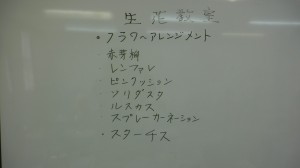 生花教室
・フラワーアレンジメント
赤芽柳
レンファレ
ピンクッション
ソリダスタ
ルスカス
スプレーカーネーション
・スターチス